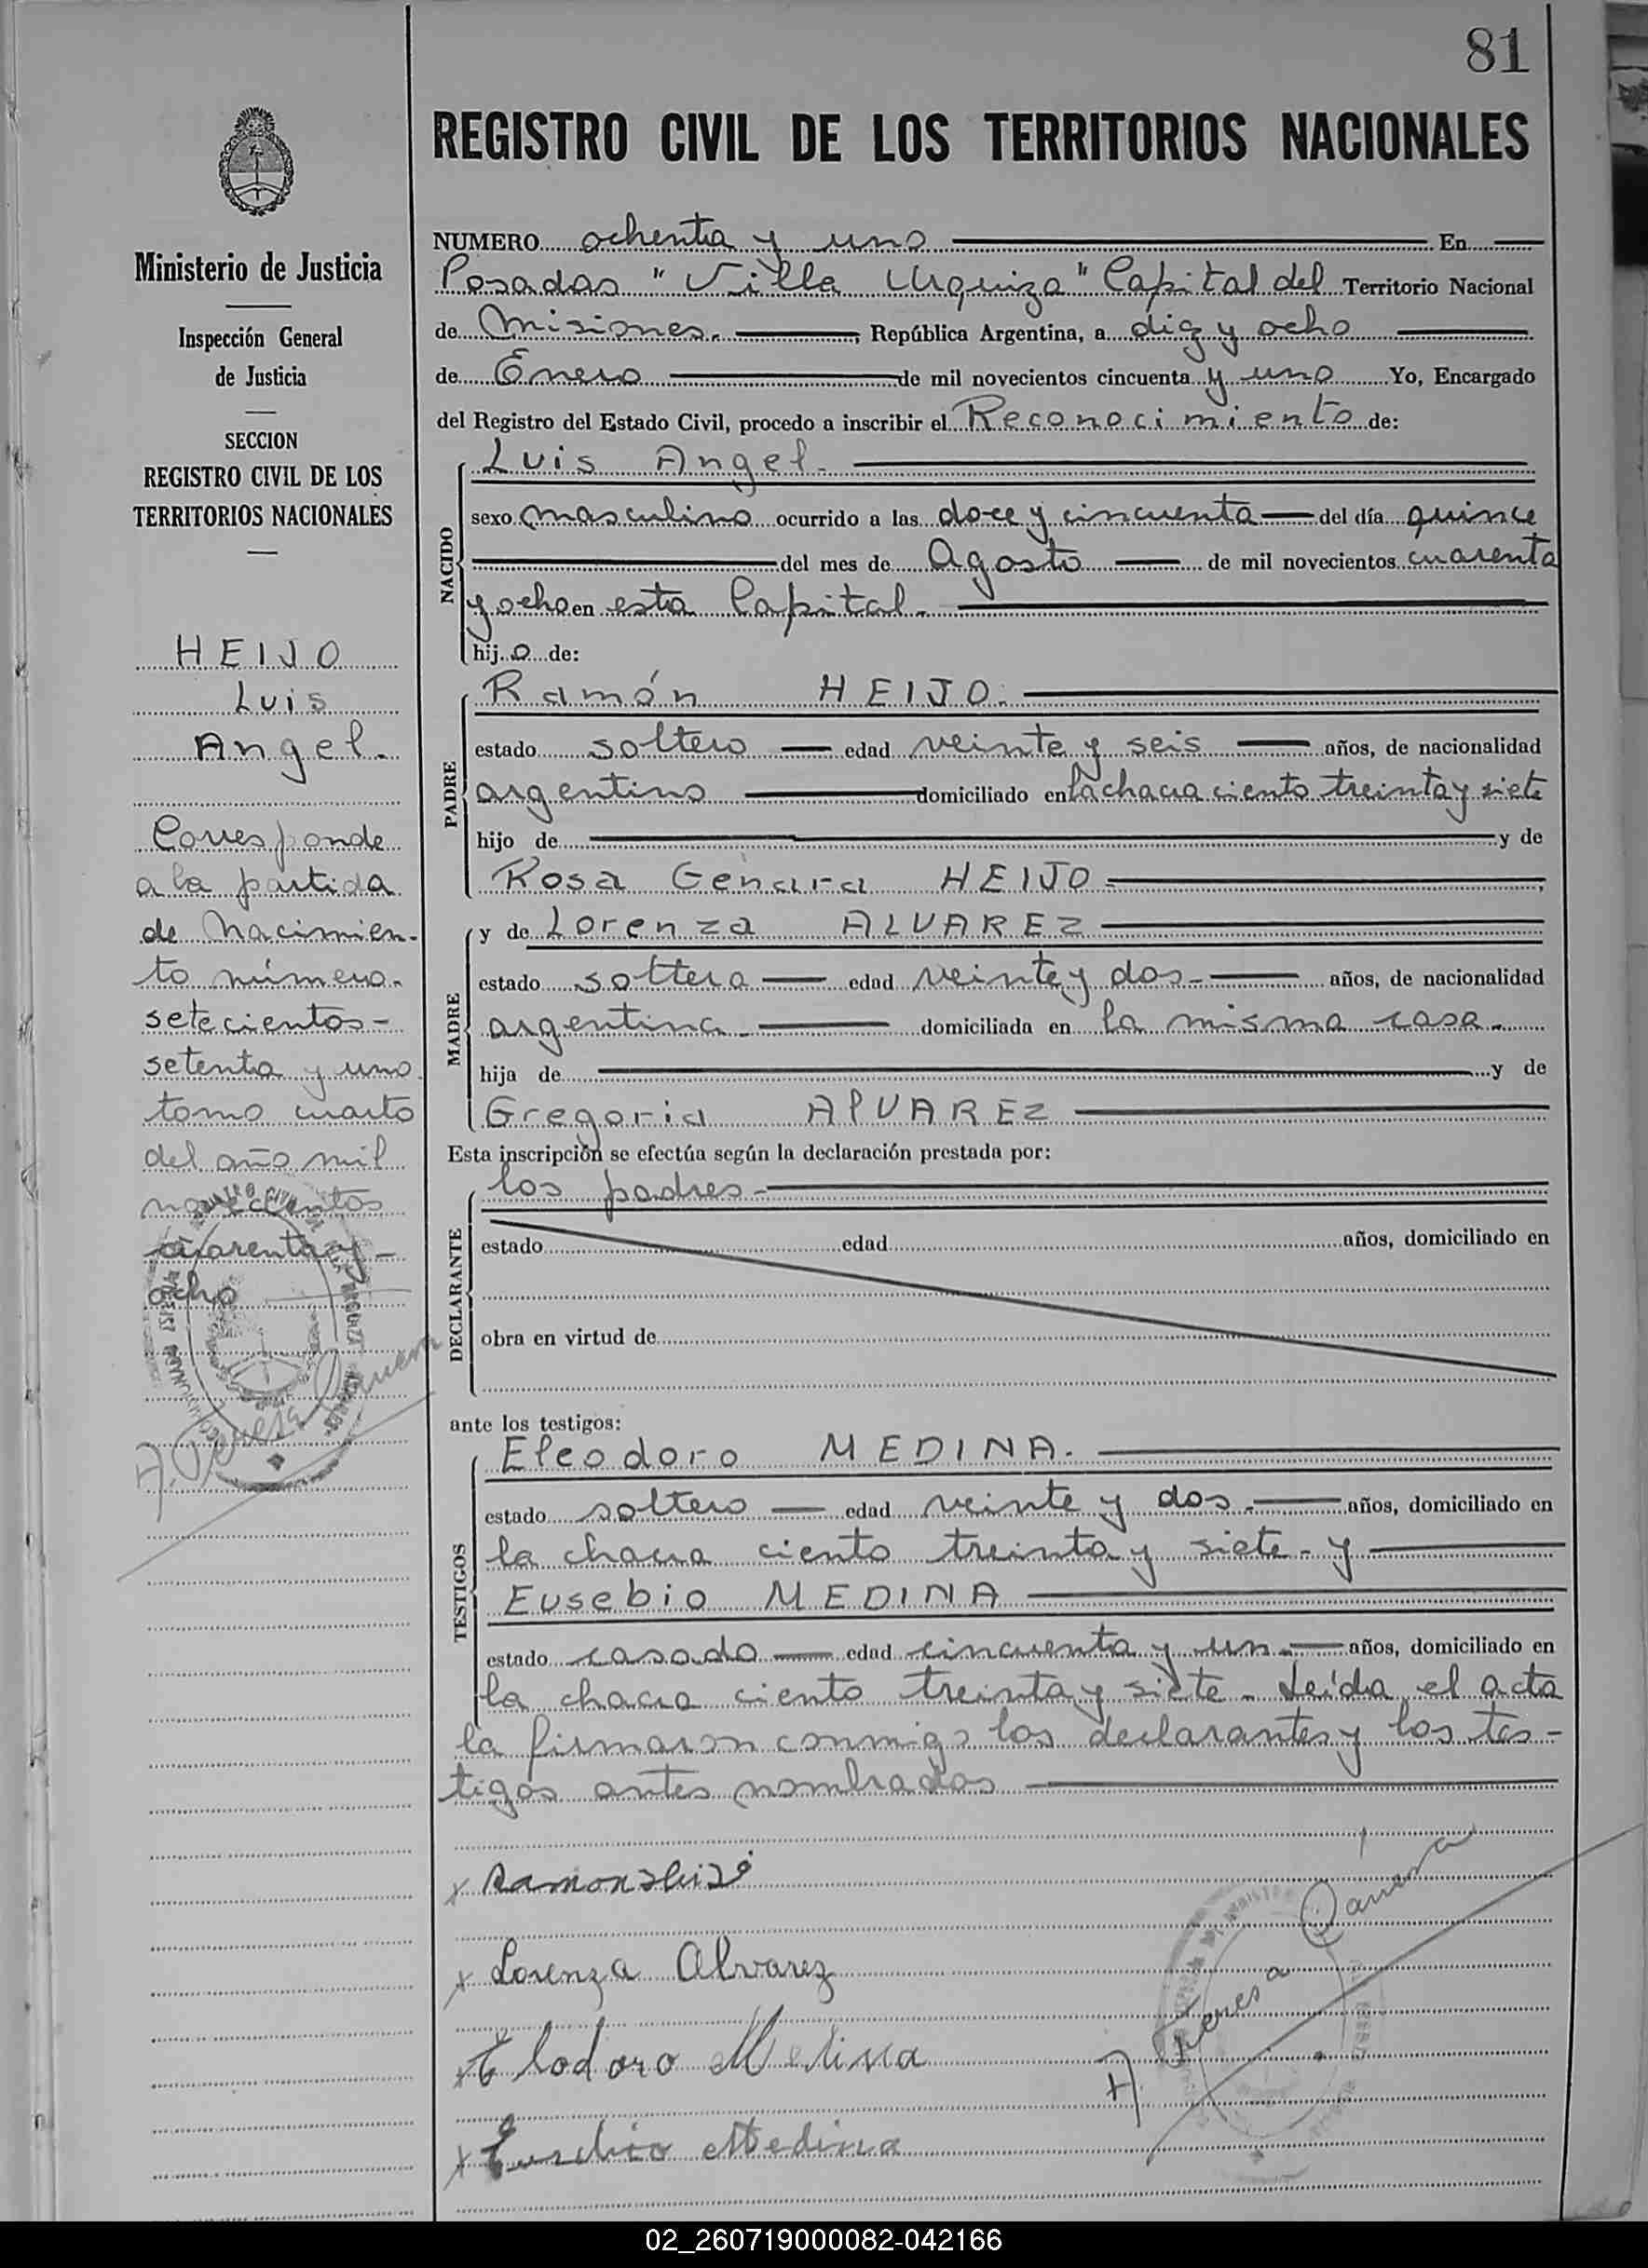 81
REGISTRO CIVIL DE LOS TERRITORIOS NACIONALES
Ministerio de Justicia
Inspección General
de Justicia
SECCION
REGISTRO CIVIL DE LOS
TERRITORIOS NACIONALES
HEIJO
Luis
Angel.
Corresponde
a la partida
de nacimien-
to número.
setecientos-
setenta y uno
tomo cuarto
del año mil
novecientos
cuarenta y-
ocho
NUMERO ochenta y uno En
Posadas "Villa Urquiza" Capital del Territorio Nacional
de Misiones. República Argentina, a diez y ocho
de Enero de mil novecientos cincuenta y uno Yo, Encargado
del Registro del Estado Civil, procedo a inscribir el Reconocimiento de:
NACIDO
Luis Angel.
sexo masculino ocurrido a las doce y cincuenta del día quince
del mes de Agosto de mil novecientos cuarenta
y ocho en esta Capital.
hij o de:
PADRE
Ramón HEIJO.
estado soltero edad veinte y seis años, de nacionalidad
argentino domiciliado en la chacra ciento treinta y siete
hijo de y de
Rosa Genara HEIJO.
MADRE
y de Lorenza ALVAREZ
estado soltera edad veinte y dos. años, de nacionalidad
argentina. domiciliada en la misma casa.
hija de y de
Gregoria AlVAREZ
Esta inscripción se efectúa según la declaración prestada por:
DECLARANTE
los padres.
estado edad años, domiciliado en
obra en virtud de
ante los testigos:
TESTIGOS
Eleodoro MEDINA.
estado soltero edad veinte y dos. años, domiciliado en
la chacra ciento treinta y siete. y
Eusebio MEDINA
estado casado edad cincuenta y un. años, domiciliado en
la chacra ciento treinta y siete. Leída el acta
la firmaron conmigo los declarantes y los tes-
tigos antes nombrados
x Lorenza Alvarez
x Elodoro Medina
x Eusebio Medina
02_260719000082-042166